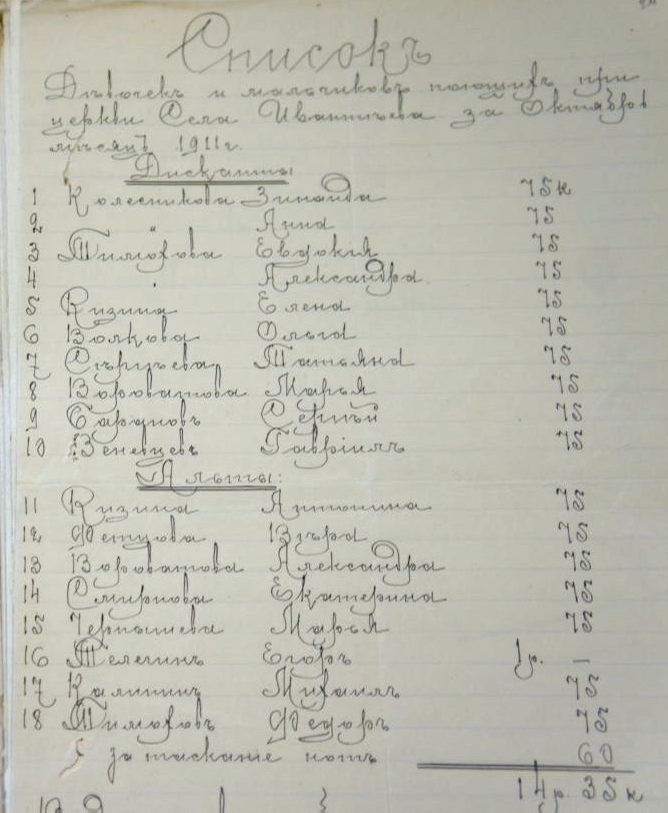 Списокъ
Дѣвочекъ и мальчиковъ поющихъ при
церкви Села Ивантѣева за Октябрь
мѣсяцъ 1911 г.
Дисканты
1 Колесникова Зинаида 75 к
2 " Анна 75
3 Тимофѣва Евдокія 75
4 " Александра 75
5 Кизина Елена 75
6 Волкова Ольга 75
7 Сърцѣева Татьяна 75
8 Вороватова Марья 75
9 Баранов Сергѣй 75
10 Зеневцевъ Гавріилъ 75
Альты:
11 Кизина Антонина 75
12 Фетцова Вѣра 75
13 Вороватова Александра 75
14 Смирнова Екатерина 75
15 Чернышева Марья 75
16 Телегинъ Егоръ 1 р. –
17 Калитинъ Михаилъ 75
18 Тимофѣвъ Федоръ 75
за таскание нотъ 60
14 р. 35 к